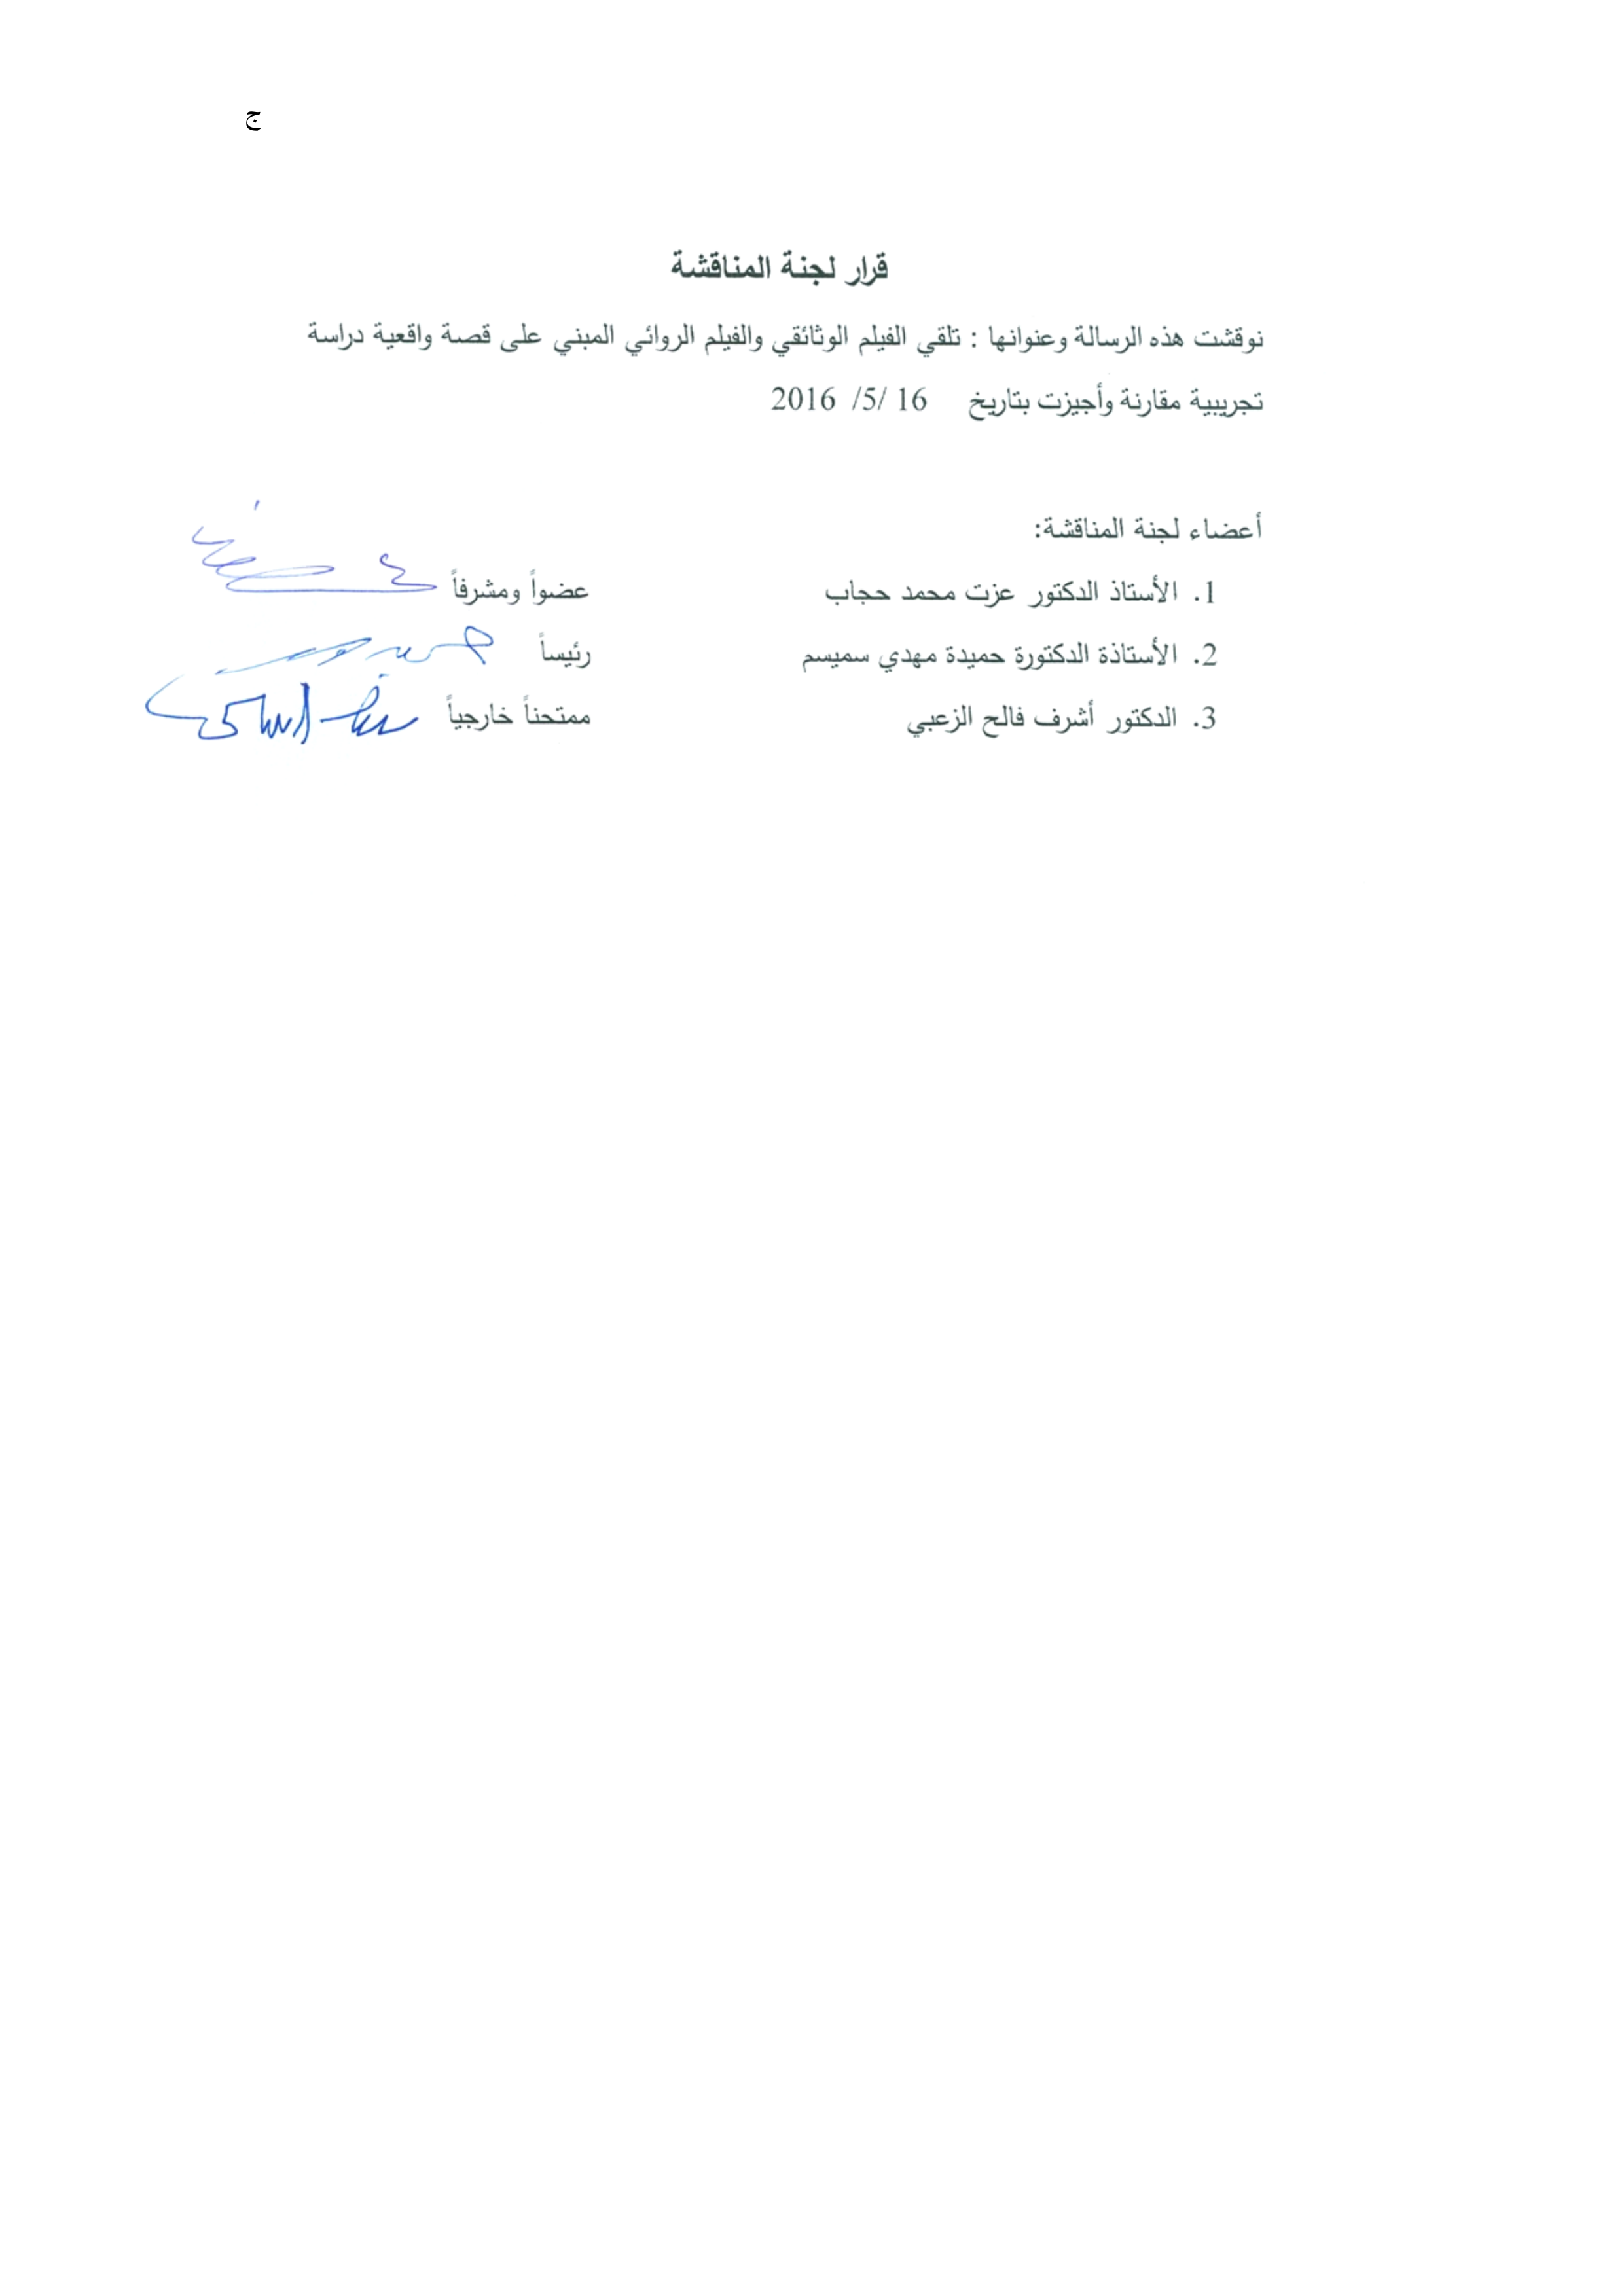 ج
قرار لجنة المناقشة
نوقشت هذه الرسالة وعنوانها : تلقي الفيلم الوثائقي والفيلم الروائي المبني على قصة واقعية دراسة
تجريبية مقارنة وأجيزت بتاريخ 16 /5/ 2016
أعضاء لجنة المناقشة:
1. الأستاذ الدكتور عزت محمد حجاب عضواً ومشرفاً
2. الأستاذة الدكتورة حميدة مهدي سميسم رئيساً
3. الدكتور أشرف فالح الزعبي ممتحناً خارجياً